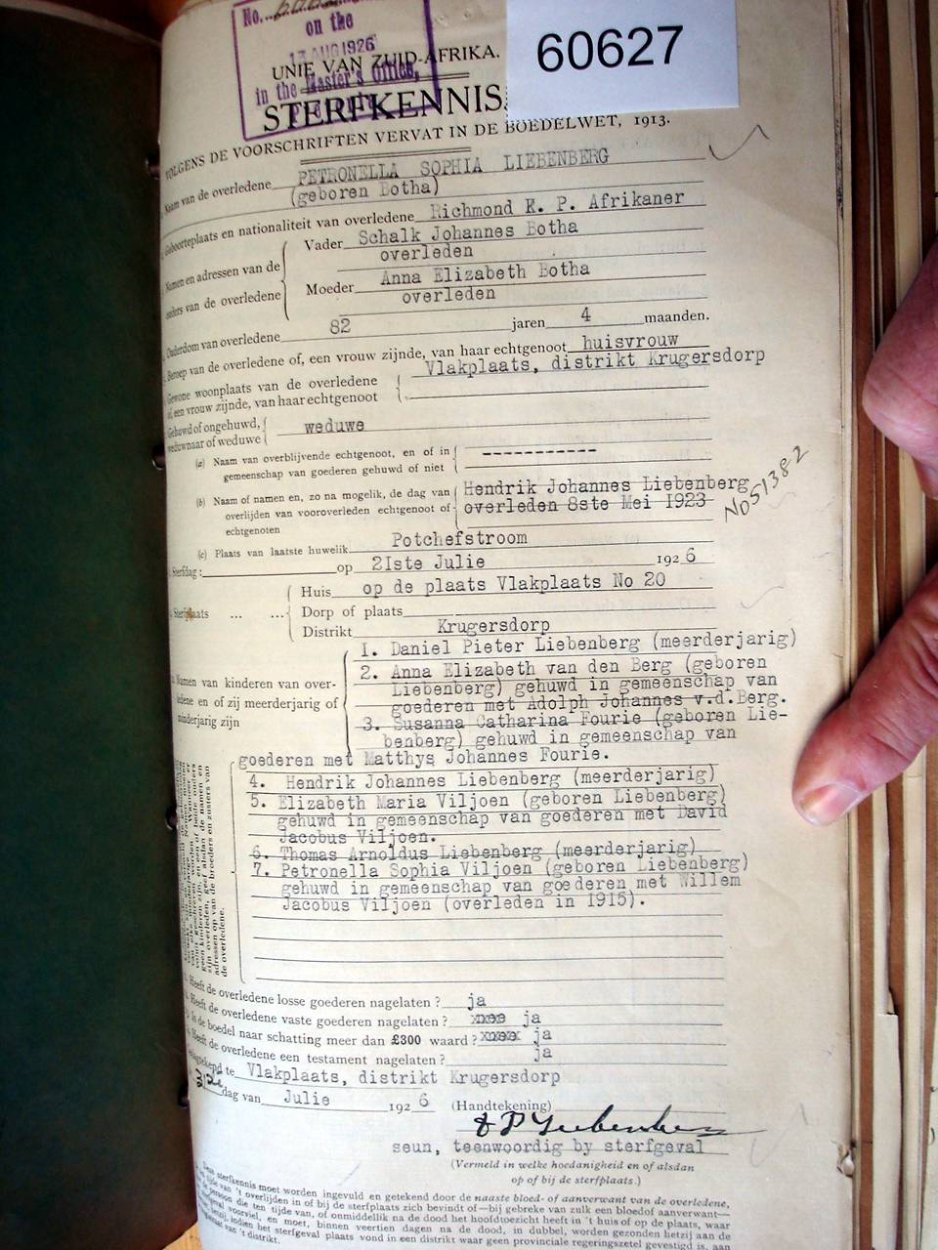 No.
on the
13 AUG 1926
in the Master's Office,
60627
UNIE VAN ZUID-AFRIKA.
STERFKENNIS
VOLGENS DE VOORSCHRIFTEN VERVAT IN DE BOEDELWET, 1913.
Naam van de overledene PETRONELLA SOPHIA LIEBENBERG
(geboren Botha)
Geboorteplaats en nationaliteit van overledene Richmond K. P. Afrikaner
Namen en adressen van de ouders van de overledene
Vader Schalk Johannes Botha
overleden
Moeder Anna Elizabeth Botha
overleden
Ouderdom van overledene 82 jaren 4 maanden.
Beroep van de overledene of, een vrouw zijnde, van haar echtgenoot huisvrouw
Gewone woonplaats van de overledene
of, een vrouw zijnde, van haar echtgenoot
Vlakplaats, distrikt Krugersdorp
Gehuwd of ongehuwd,
weduwnaar of weduwe
weduwe
(a) Naam van overblijvende echtgenoot, en of in
gemeenschap van goederen gehuwd of niet
-----------
(b) Naam of namen en, zo na mogelik, de dag van
overlijden van vooroverleden echtgenoot of
echtgenoten
Hendrik Johannes Liebenberg
overleden 8ste Mei 1923
No 51382
(c) Plaats van laatste huwelik Potchefstroom
Sterfdag: op 2Iste Julie 1926
Sterfplaats ... ...
Huis op de plaats Vlakplaats No 20
Dorp of plaats
Distrikt Krugersdorp
Namen van kinderen van over-
ledene en of zij meerderjarig of
minderjarig zijn
1. Daniel Pieter Liebenberg (meerderjarig)
2. Anna Elizabeth van den Berg (geboren
Liebenberg) gehuwd in gemeenschap van
goederen met Adolph Johannes v.d.Berg.
3. Susanna Catharina Fourie (geboren Lie-
benberg) gehuwd in gemeenschap van
goederen met Matthys Johannes Fourie.
4. Hendrik Johannes Liebenberg (meerderjarig)
5. Elizabeth Maria Viljoen (geboren Liebenberg)
gehuwd in gemeenschap van goederen met David
Jacobus Viljoen.
6. Thomas Arnoldus Liebenberg (meerderjarig)
7. Petronella Sophia Viljoen (geboren Liebenberg)
gehuwd in gemeenschap van goederen met Willem
Jacobus Viljoen (overleden in 1915).
zijn overleden, geef alsdan de namen en
adressen op van de broeders en zusters van
de overledene.
Heeft de overledene losse goederen nagelaten? ja
Heeft de overledene vaste goederen nagelaten? ja
Is de boedel naar schatting meer dan £300 waard? ja
Heeft de overledene een testament nagelaten? ja
te Vlakplaats, distrikt Krugersdorp
dag van Julie 1926
(Handtekening) D P Liebenberg
seun, teenwoordig by sterfgeval
(Vermeld in welke hoedanigheid en of alsdan
op of bij de sterfplaats.)
Deze sterfkennis moet worden ingevuld en getekend door de naaste bloed- of aanverwant van de overledene,
van 't overlijden in of bij de sterfplaats zich bevindt of—bij gebreke van zulk een bloed of aanverwant—
persoon die ten tijde van, of onmiddelik na de dood het hoofdtoezicht heeft in 't huis of op de plaats, waar
voorviel, en moet, binnen veertien dagen na de dood, in dubbel, worden gezonden hetzij aan de
indien het sterfgeval plaats vond in een distrikt waar geen provinciale regeringszetel gevestigd is, aan
van 't distrikt.